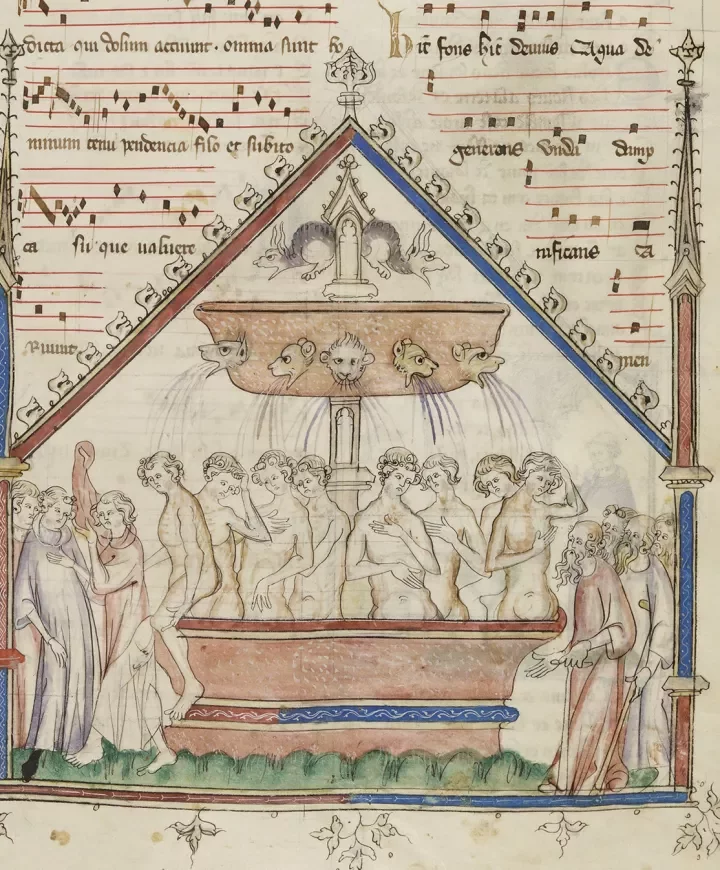 dicta qui dolum acciunt · omnia sunt ho
minum tenui pendencia filo et subito
ca su que ualuere
Ruunt.
Hic fons hic devius Aqua de
generans Vnda damp
nificans A
men